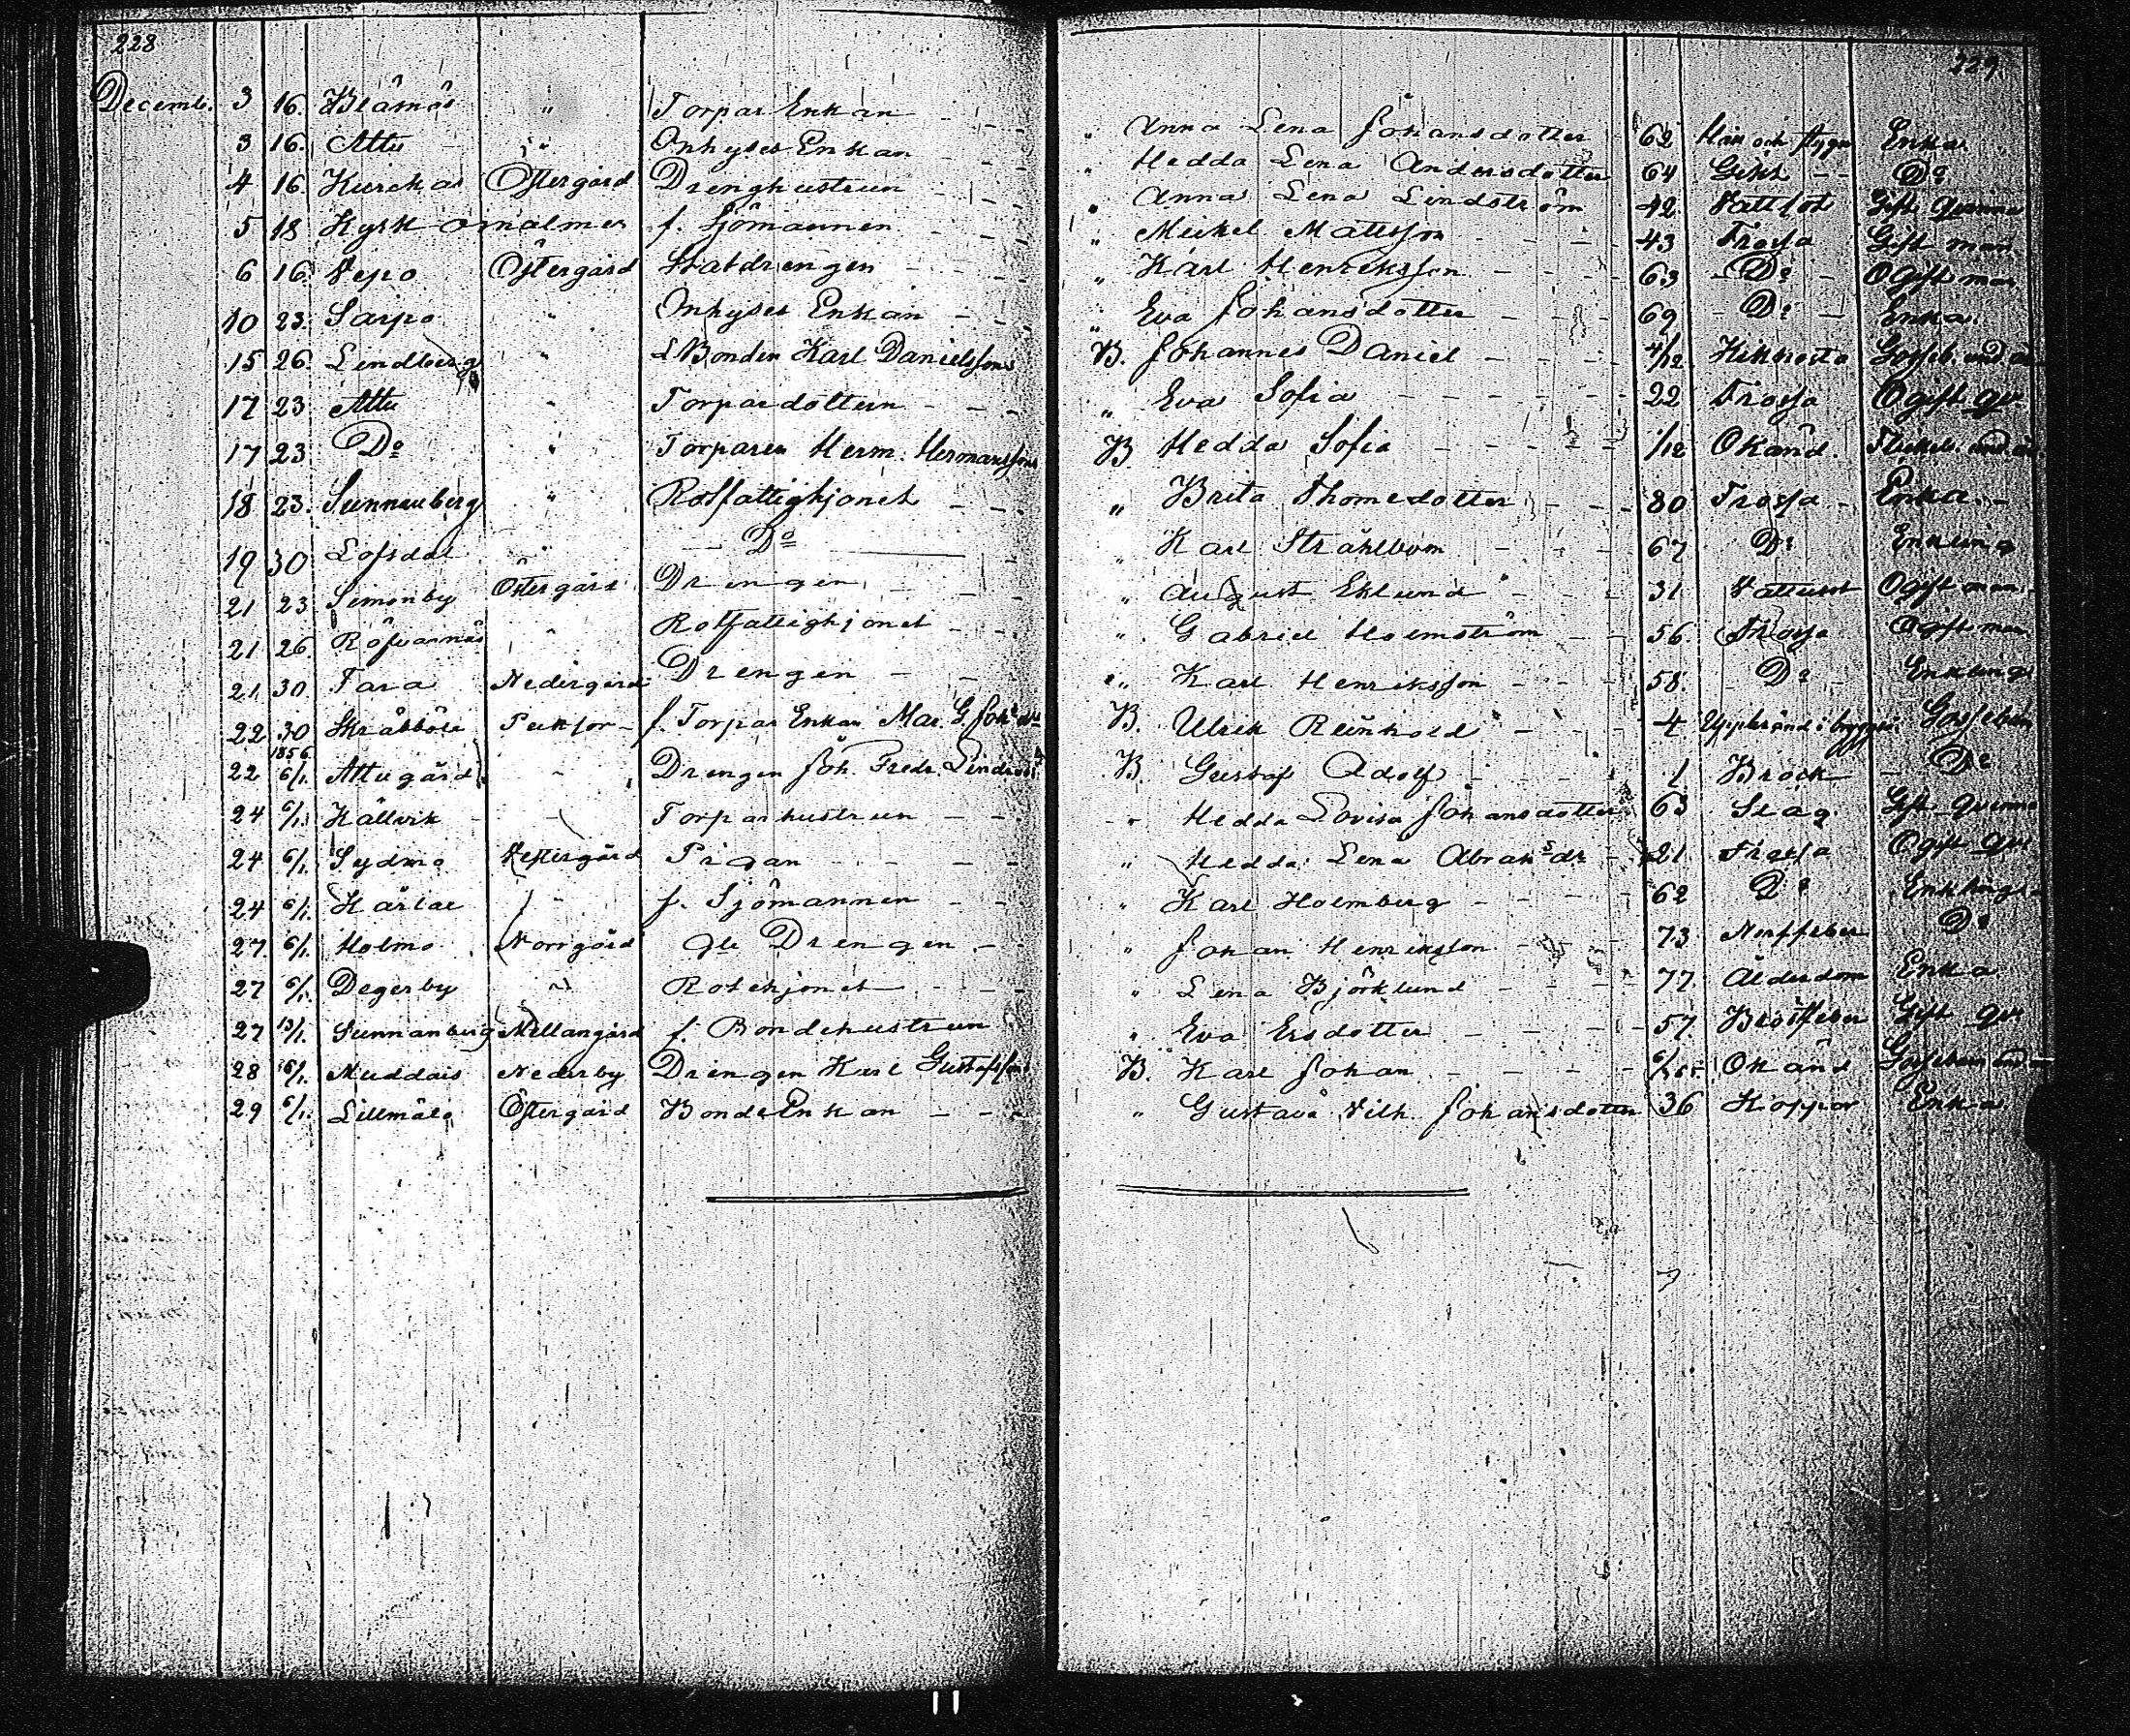 228
229
Decemb. 3 16. Blåmås " Torpar Enkan " Anna Lena Johansdotter 62 Håll och stygn Enka
3 16. Attu " Inhyses Enkan " Hedda Lena Andersdotter 64 Gikt Do
4 16. Kurckas Östergård Drenghustrun " Anna Lena Lindström 42 Vattsot Gift qvinna
5 18 Kyrkomalmen f. Sjömannen " Mickel Mattsson 43 Frossa Gift man
6 16. Vepo Östergård Statdrengen " Karl Henriksson 63 Do Ogift man
10 23. Sarpo " Inhyses Enkan " Eva Johansdotter 69 Do Enka
15 26. Lendberg " LBonden Karl Danielssons B. Johannes Daniel 4/12 Kikhosta Gosseb. und.
17 23 Attu " Torpardottern " Eva Sofia 22 Frossa Ogift qv.
17 23 Do " Torparen Herm. Hermanssons B Hedda Sofia 1/12 Okänd. Flickeb. und.
18 23. Sunnanberg " Rotfattighjonet " Brita Thomedotter 80 Frossa Enka
19 30 Lofsdal " Do " Karl Stråhlbom 67 Do Enkling
21 23 Simonby Östergård Drengen " August Eklund 31 Vattusot Ogift man
21 26. Röfvarnäs " Rotfattighjonet " Gabriel Holmström 56 Frossa Ogift man
21. 30. Tara Nedergård Drengen " Karl Henriksson 58. Do Enkling
22 30 Skräbböle f. Torpar Enkan Mar. G. Joh. dr B. Ulrik Reinhold 4 Uppbränd i Gossebarn
22 1856 6/1. Attugård " Drengen Joh. Fredr. B. Gustaf Adolf 1 Bråck Do
24 6/1. Källvik Torparhustrun " Hedda Lovisa Johansdotter 63 Slag Gift qvinna
24 6/1. Sydmo Vestergård Pigan " Hedda Lena Abrahsdr 21 Frossa Ogift qv.
24 6/1. Kärlax f. Sjömannen " Karl Holmberg 62 Do Enkling
27. 6/1. Holmo Norrgård Gle Drengen " Johan Henriksson 73 Nerffeber Do
27 6/1. Degerby " Rotehjonet " Lena Björklund 77. Ålderdom Enka
27 13/1. Sunnanberg Mellangård f. Bondehustrun " Eva Ersdotter 57. Bröstfeber Gift qv.
28 6/1. Muddais Nederby Drengen Karl Gustafssons B. Karl Johan Okänd Gossebarn und
29 6/1. Lillmälö Östergård BondeEnkan " Gustava Vilh. Johansdotter 36 Koppor Enka